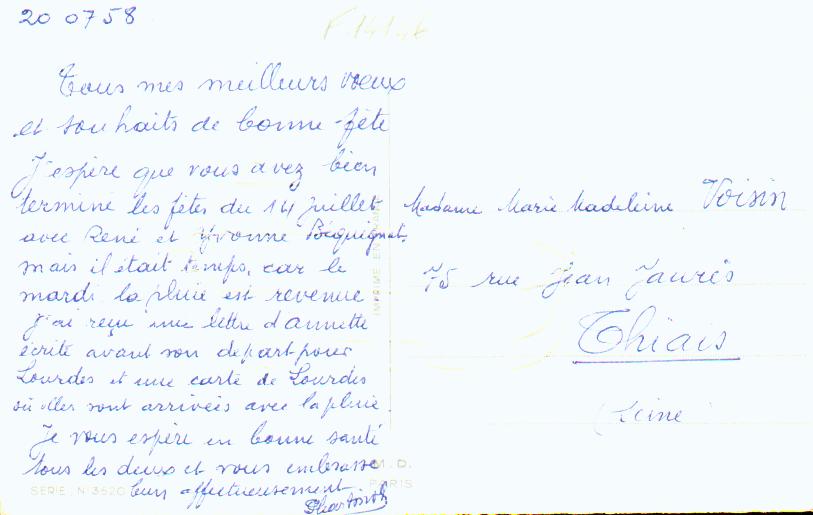 20 07 58
Tous mes meilleurs voeux
et souhaits de bonne fête
J'espère que vous avez bien
terminé les fêtes du 14 juillet
avec René et Yvonne Bocquignat
mais il était temps, car le
mardi la pluie est revenue
J'ai reçu une lettre d'annette
écrite avant son depart pour
Lourdes et une carte de Lourdes
où elles sont arrivées avec la pluie.
Je vous espère en bonne santé
tous les deux et vous embrasse
bien affectueusement
Madame Marie Madeleine Voisin
75 rue Jean Jaurès
Thiais
(Seine)
IMPRIMÉ EN
M.D.
PARIS
SERIE N° 3520